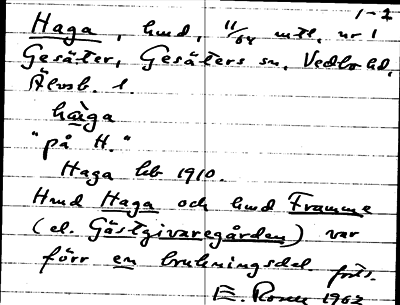 1-2
Haga, hmd, 11/64 mtl. nr 1
Gesäter, Gesäters sn, Vedbo hd,
Älvsb. l.
hàga
"på H."
Haga hb 1910.
Hmd Haga och hmd Framme
(el. Gästgivaregården) var
förr en brukningsdel. forts.
E. Rosen 1962